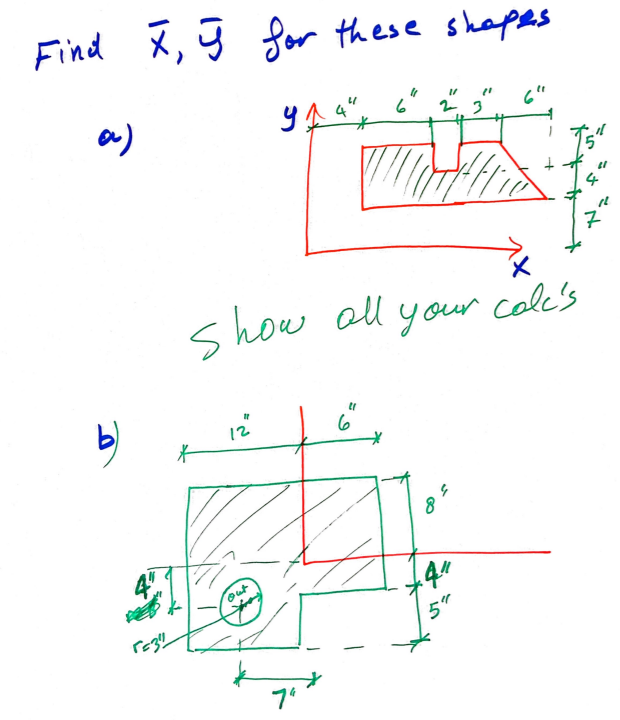 Find x̄, ȳ for these shapes
a)
y 4" 6" 2" 3" 6"
5"
4"
7"
x
Show all your calc's
b)
12" 6"
8"
4" 4"
out
5"
r=3"
7"